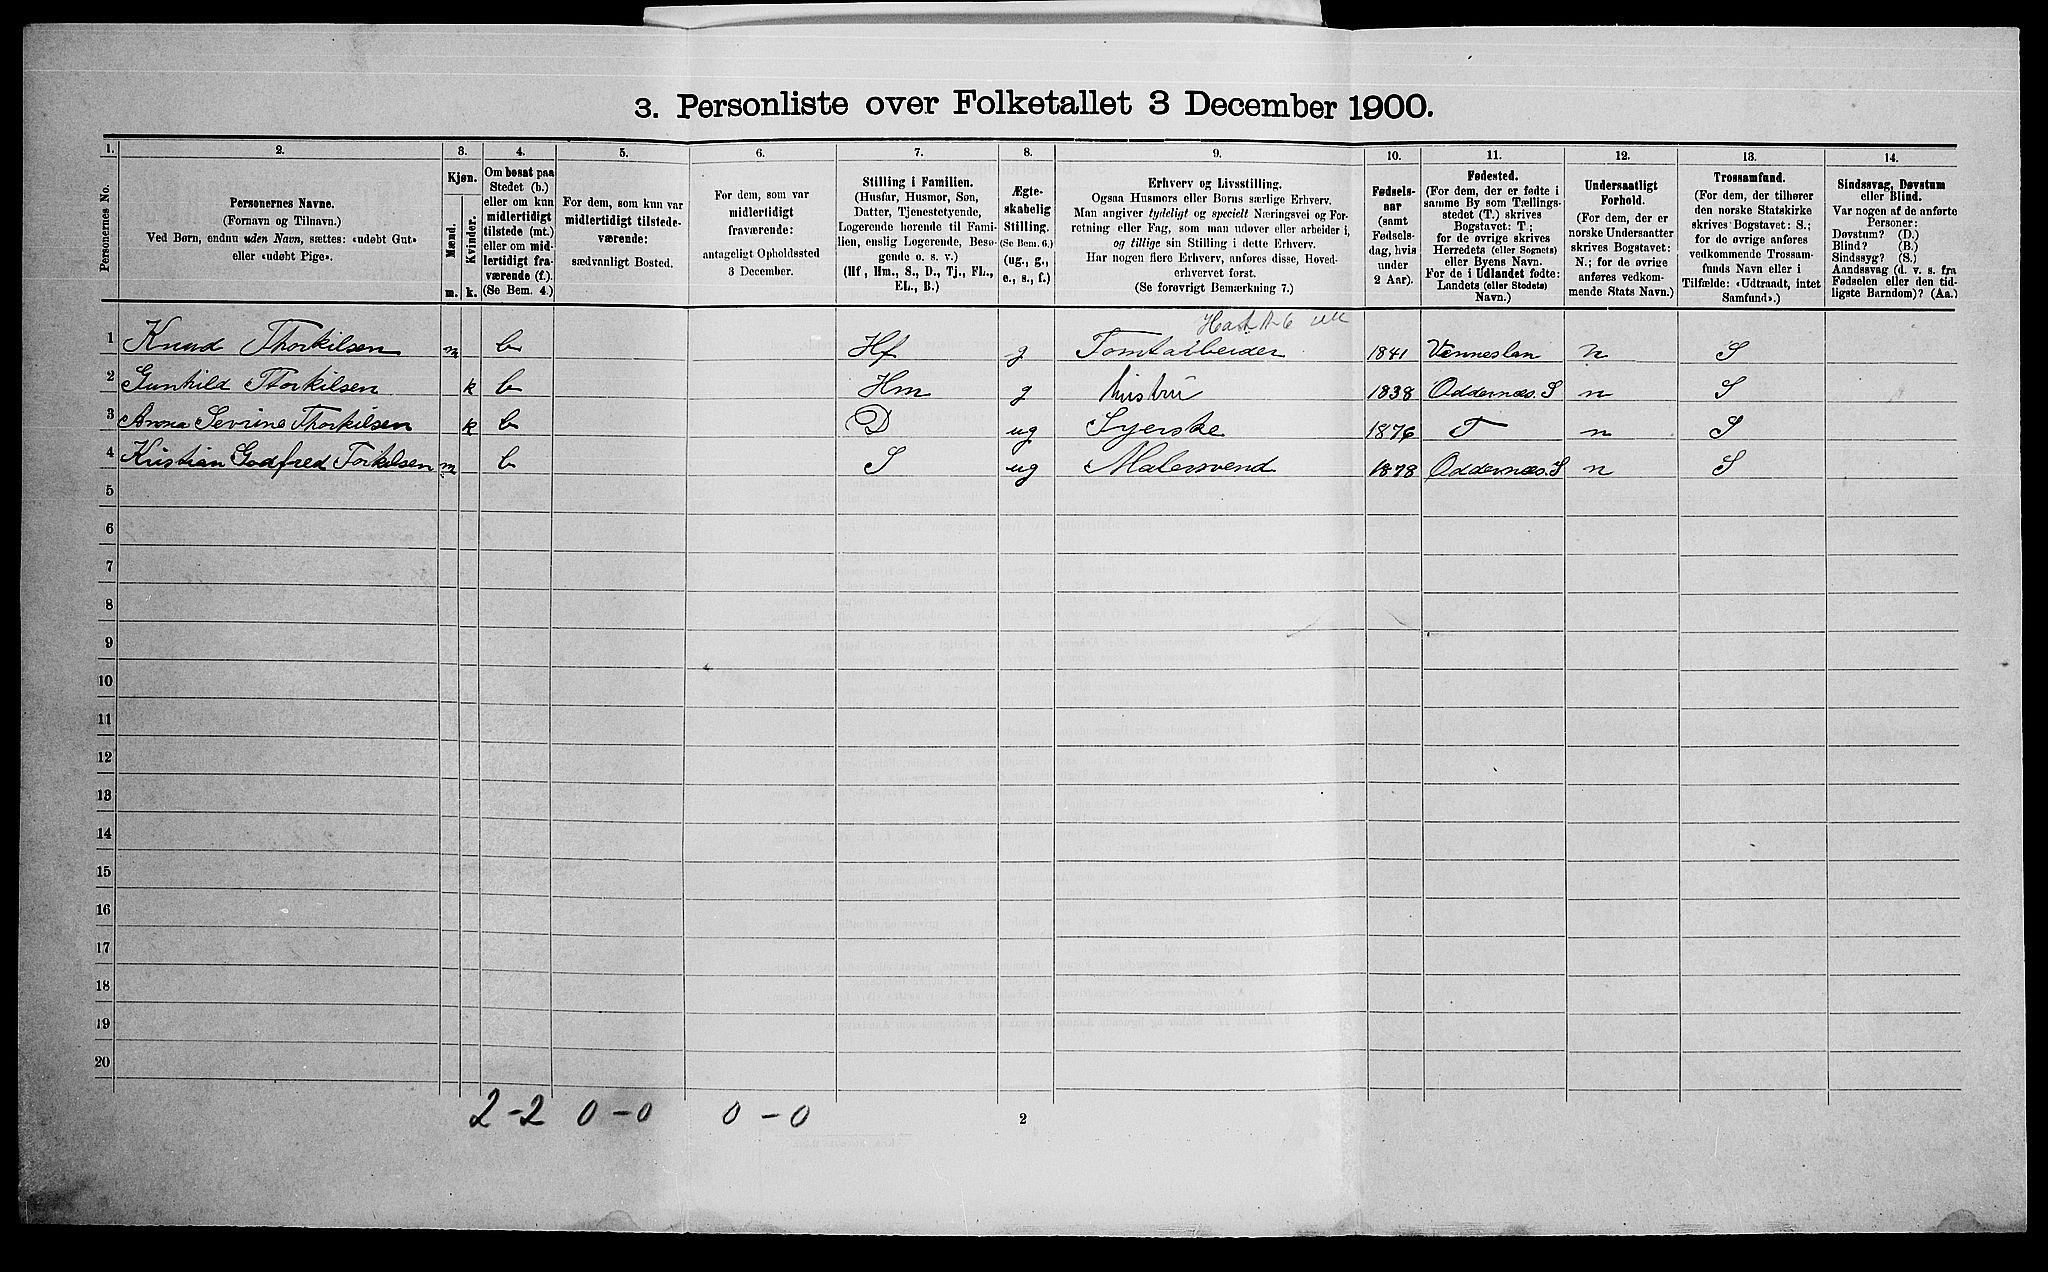 3. Personliste over Folketallet 3 December 1900.
1. 2. 3. 4. 5. 6. 7. 8. 9. 10. 11. 12. 13. 14.
Personernes No.
Personernes Navne.
(Fornavn og Tilnavn.)
Ved Børn, endnu uden Navn, sættes: «udøbt Gut»
eller «udøbt Pige».
Kjøn.
Mænd.
Kvinder.
m. k.
Om bosat paa
Stedet (b.)
eller om kun
midlertidigt
tilstede (mt.)
eller om mid-
lertidigt fra-
værende (f.).
(Se Bem. 4.)
For dem, som kun var
midlertidigt tilstede-
værende:
sædvanligt Bosted.
For dem, som var
midlertidigt
fraværende:
antageligt Opholdssted
3 December.
Stilling i Familien.
(Husfar, Husmor, Søn,
Datter, Tjenestetyende,
Logerende hørende til Fami-
lien, enslig Logerende, Besø-
gende o. s. v.)
(Hf, Hm., S., D., Tj., FL.,
EL., B.)
Ægte-
skabelig
Stilling.
(Se Bem. 6.)
(ug., g.,
e., s., f.)
Erhverv og Livsstilling.
Ogsaa Husmors eller Børns særlige Erhverv.
Man angiver tydeligt og specielt Næringsvei og For-
retning eller Fag, som man udøver eller arbeider i,
og tillige sin Stilling i dette Erhverv.
Har nogen flere Erhverv, anføres disse, Hoved-
erhvervet først.
(Se forøvrigt Bemærkning 7.)
Fødsels-
aar
(samt
Fødsels-
dag, hvis
under
2 Aar).
Fødested.
(For dem, der er fødte i
samme By som Tællings-
stedet (T.) skrives
Bogstavet: T.;
for de øvrige skrives
Herredets (eller Sognets)
eller Byens Navn.
For de i Udlandet fødte:
Landets (eller Stedets)
Navn.)
Undersaatligt
Forhold.
(For dem, der er
norske Undersaatter
skrives Bogstavet:
N.; for de øvrige
anføres vedkom-
mende Stats Navn.)
Trossamfund.
(For dem, der tilhører
den norske Statskirke
skrives Bogstavet: S.;
for de øvrige anføres
vedkommende Trossam-
funds Navn eller i
Tilfælde: «Udtraadt, intet
Samfund».)
Sindssvag, Døvstum
eller Blind.
Var nogen af de anførte
Personer:
Døvstum? (D.)
Blind? (B.)
Sindssyg? (S.)
Aandssvag (d. v. s. fra
Fødselen eller den tid-
ligste Barndom)? (Aa.)
1 Knud Thorkilsen m b Hf g Tomtarbeider 1841 Venneslan n S
2 Gunhild Thorkilsen k b Hm g hustru 1838 Oddernæs. S n S
3 Anna Sevrine Thorkilsen k b D ug Syerske 1876 T n S
4 Kristian Godfred Torkilsen m b S ug Malersvend 1878 Oddernæs. S n S
5
6
7
8
9
10
11
12
13
14
15
16
17
18
19
20
2-2 0-0 0-0
2